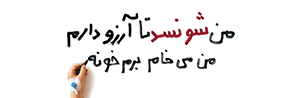 من شونسد تا آرزو دارم
من می خام برم خونه